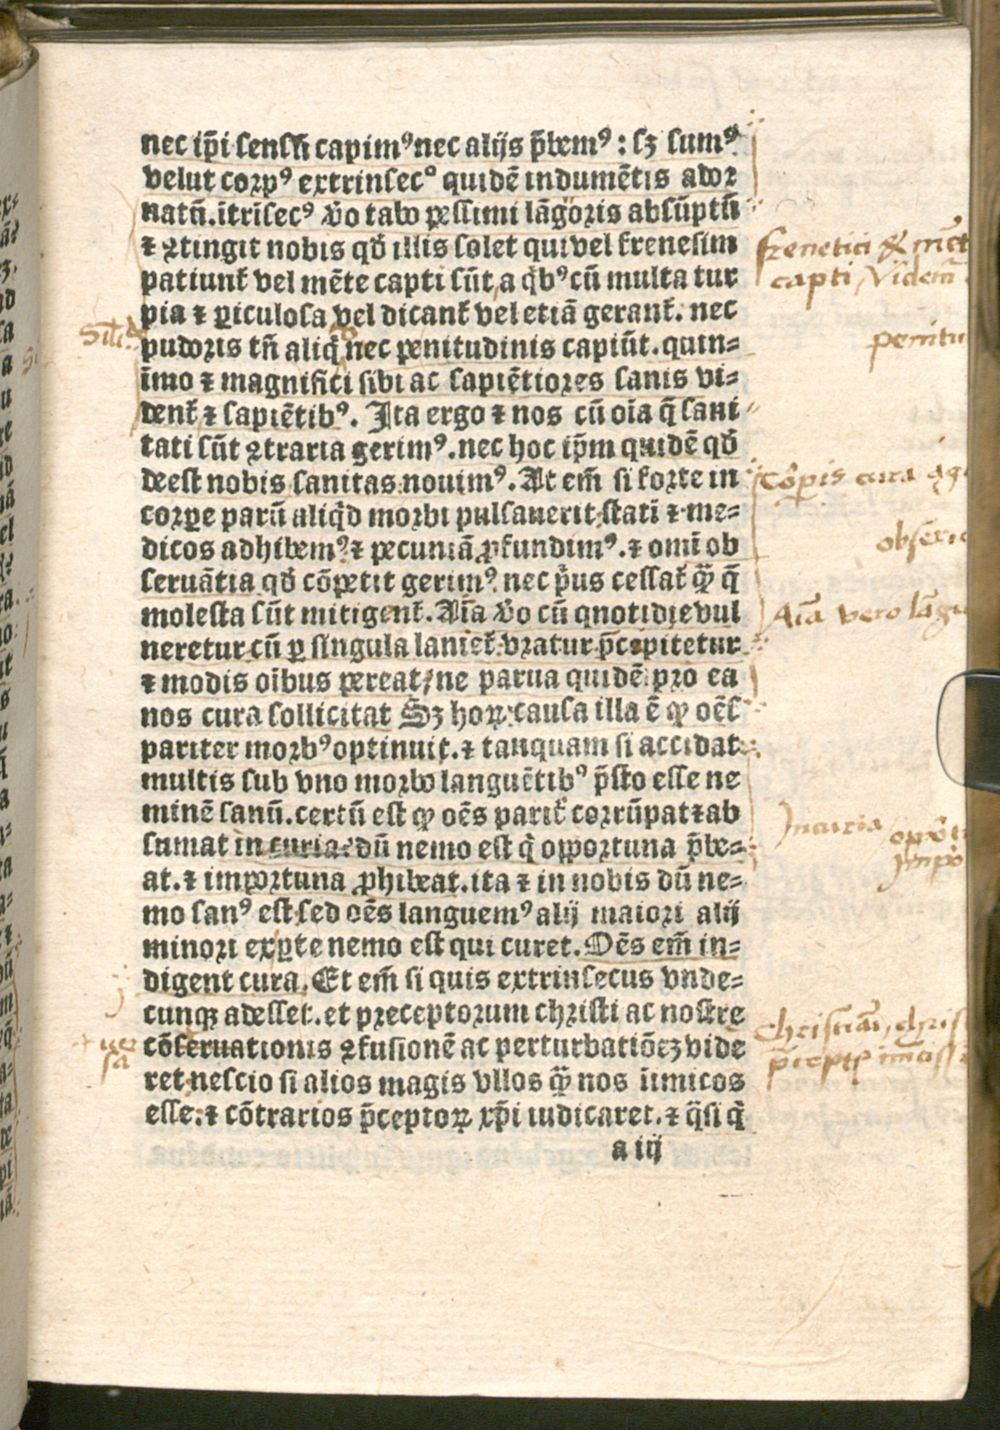 nec ip̄i sensū capimꝰ nec alijs p̄bemꝰ : sꝫ sumꝰ
velut corpꝰ extrinsecꝰ quidē indumētis ador
natū. ītrīsecꝰ v̓o tabo pessimi lāgoris absūptū
⁊ ꝯtingit nobis qd̓ illis solet qui vel frenesim
patiunt᷑ vel mēte capti sūt, a q̓bꝰ cū multa tur
pia ⁊ ꝑiculosa vel dicant᷑ vel etiā gerant᷑. nec
pudoris tñ aliqd̓ nec penitudinis capiūt. quin⸗
īmo ⁊ magnifici sibi ac sapiētiores sanis vi⸗
dent᷑ ⁊ sapiētibꝰ. Ita ergo ⁊ nos cū oīa q̄ sani
tati sūt ꝯtraria gerimꝰ. nec hoc ip̄m quidē qd̓
deest nobis sanitas nouimꝰ. At em̄ si forte in
corpe parū aliqd̓ morbi pulsauerit statī ⁊ me⸗
dicos adhibemꝰ ⁊ pecuniā ꝓfundimꝰ. ⁊ omī ob
seruātia qd̓ cōpetit gerimꝰ nec p̓us cessat᷑ qͣ̄ q̄
molesta sūt mitigent᷑. Aīa v̓o cū quotidie vul
neretur cū ꝑ singula laniet᷑. vratur p̄cipitetur
⁊ modis oībus pereat, ne parua quidē pro ea
nos cura sollicitat Sꝫ hoꝝ causa illa ē ꝙ oēs
pariter morbꝰ optinuit. ⁊ tanquam si accidat
multis sub vno morbo languētibꝰ p̄sto esse ne
minē sanū. certū est ꝙ oēs parit᷑ corrūpat ⁊ ab
sumat incuria. dū nemo est q̓ oportuna p̄be⸗
at. ⁊ importuna ꝓhibeat. ita ⁊ in nobis dū ne⸗
mo sanꝰ est sed oēs languemꝰ alij maiori alij
minori ex ꝑte nemo est qui curet. Oēs em̄ in⸗
digent cura. Et em̄ si quis extrinsecus vnde⸗
cunqꝫ adesset. et preceptorum christi ac nostre
cōseruationis ꝯfusionē ac perturbatiōeꝫ vide
ret nescio si alios magis vllos qͣ̄ nos īimicos
esse. ⁊ cōtrarios p̄ceptoꝝ xp̄i iudicaret. ⁊ q̓si q̓
a iij
frenetici & mēt
capti, Vident᷑
penitu
Corꝑis cura
obserua
Aīa vero lāgu
Incuria
oportu
Impo
uer
sa
Christiani, Chris
p̄ceptis